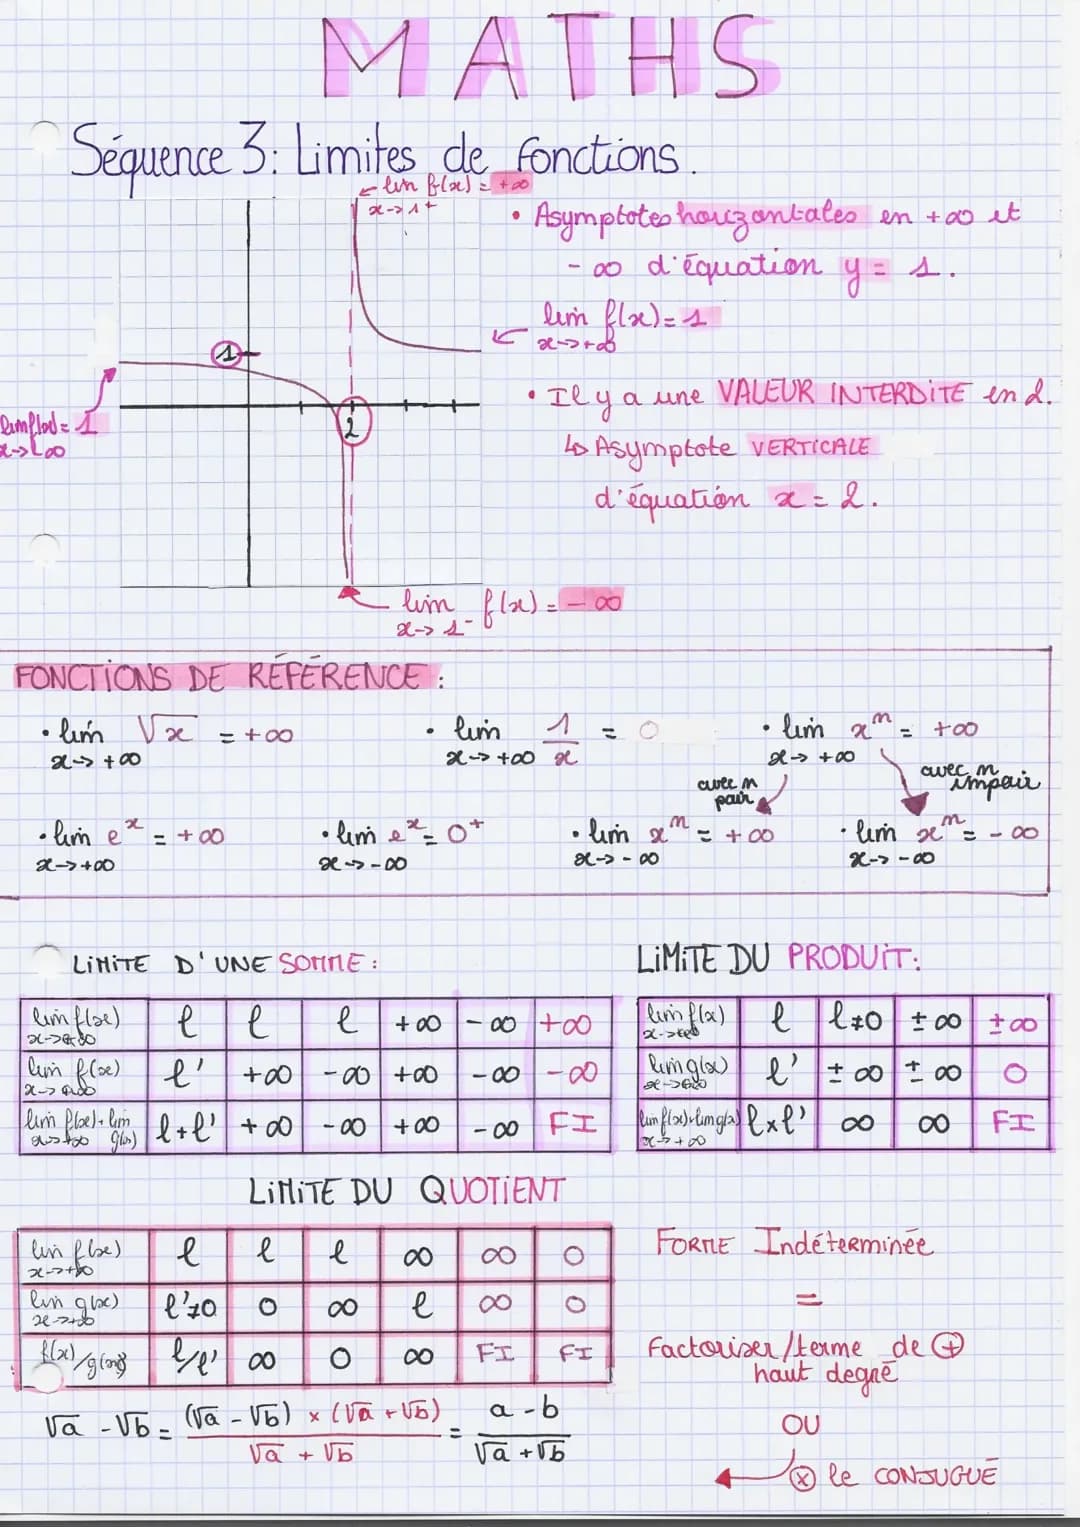 MATHS
Séquence 3: Limites de fonctions.
← lim f(x) = +∞
x→1⁺
• Asymptotes horizontales en +∞ et
-∞ d'équation y = 1.
lim f(x) = 1
x→+∞
1
lim f(x) = 1
x→-∞
2
• Il y a une VALEUR INTERDITE en 2.
↳ Asymptote VERTICALE
d'équation x = 2.
lim f(x) = -∞
x→1⁻
FONCTIONS DE RÉFÉRENCE :
• lim √x = +∞ • lim 1/x = 0 • lim xⁿ = +∞
x→+∞ x→+∞ x→+∞
avec n pair avec n impair
• lim eˣ = +∞ • lim eˣ = 0⁺ • lim xⁿ = +∞ • lim xⁿ = -∞
x→+∞ x→-∞ x→-∞ x→-∞
LIMITE D'UNE SOMME :
lim f(x) l l l +∞ -∞ +∞
lim f(x) l' +∞ -∞ +∞ -∞ -∞
lim f(x) + lim g(x) l+l' +∞ -∞ +∞ -∞ FI
x→+∞
LIMITE DU PRODUIT:
lim f(x) l l≠0 ±∞ ±∞
lim g(x) l' ±∞ ±∞ 0
lim f(x)×lim g(x) l×l' ∞ ∞ FI
x→+∞
LIMITE DU QUOTIENT
lim f(x) l l l ∞ ∞ 0
x→+∞
lim g(x) l'≠0 0 ∞ l ∞ 0
x→+∞
f(x)/g(x) l/l' ∞ 0 ∞ FI FI
FORME Indéterminée
=
Factoriser/terme de ⊕
haut degré
OU
⊗ le CONJUGUÉ
√a - √b = (√a - √b) × (√a + √b) / √a + √b = a - b / √a + √b